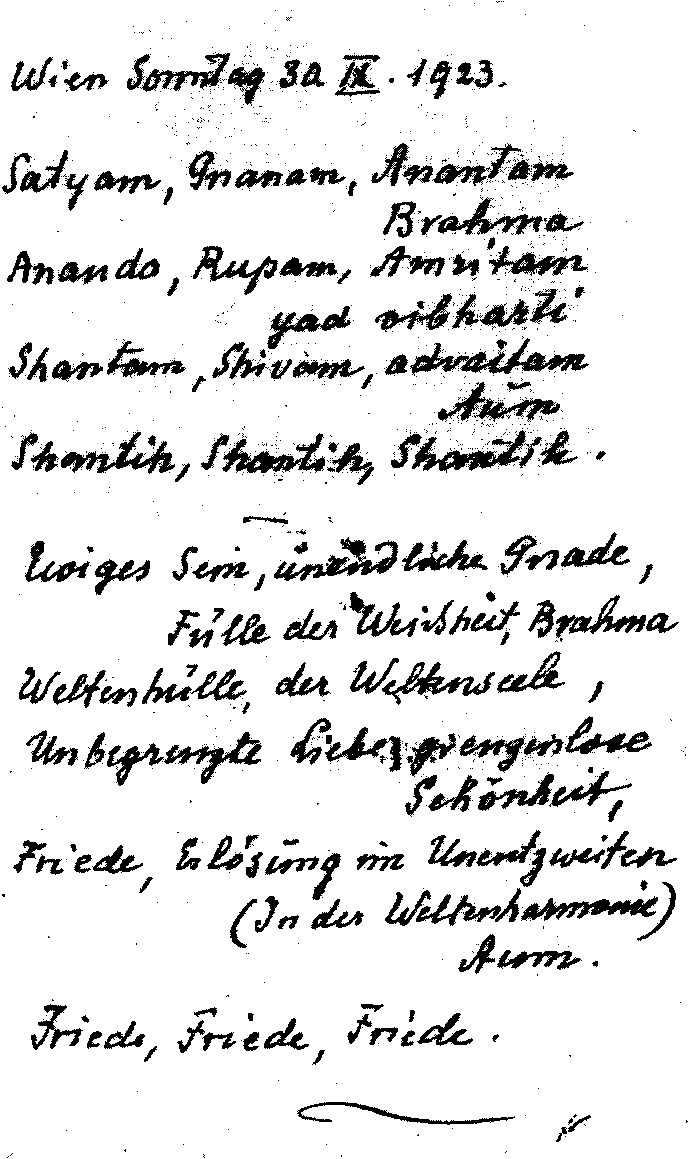 Wien Sonntag 30 IX. 1923.
Satyam, Gnanam, Anantam
Brahma
Anando, Rupam, Amritam
yad vibharti
Shantam, Shivam, advaitam
Aum
Shantih, Shantih, Shantih.
Ewiges Sein, unendliche Gnade,
Fülle der Weisheit, Brahma
Weltenhülle, der Weltenseele,
Unbegrenzte Liebe, grenzenlose
Schönheit,
Friede, Erlösung im Unentzweiten
(In der Weltenharmonie)
Aum.
Friede, Friede, Friede.